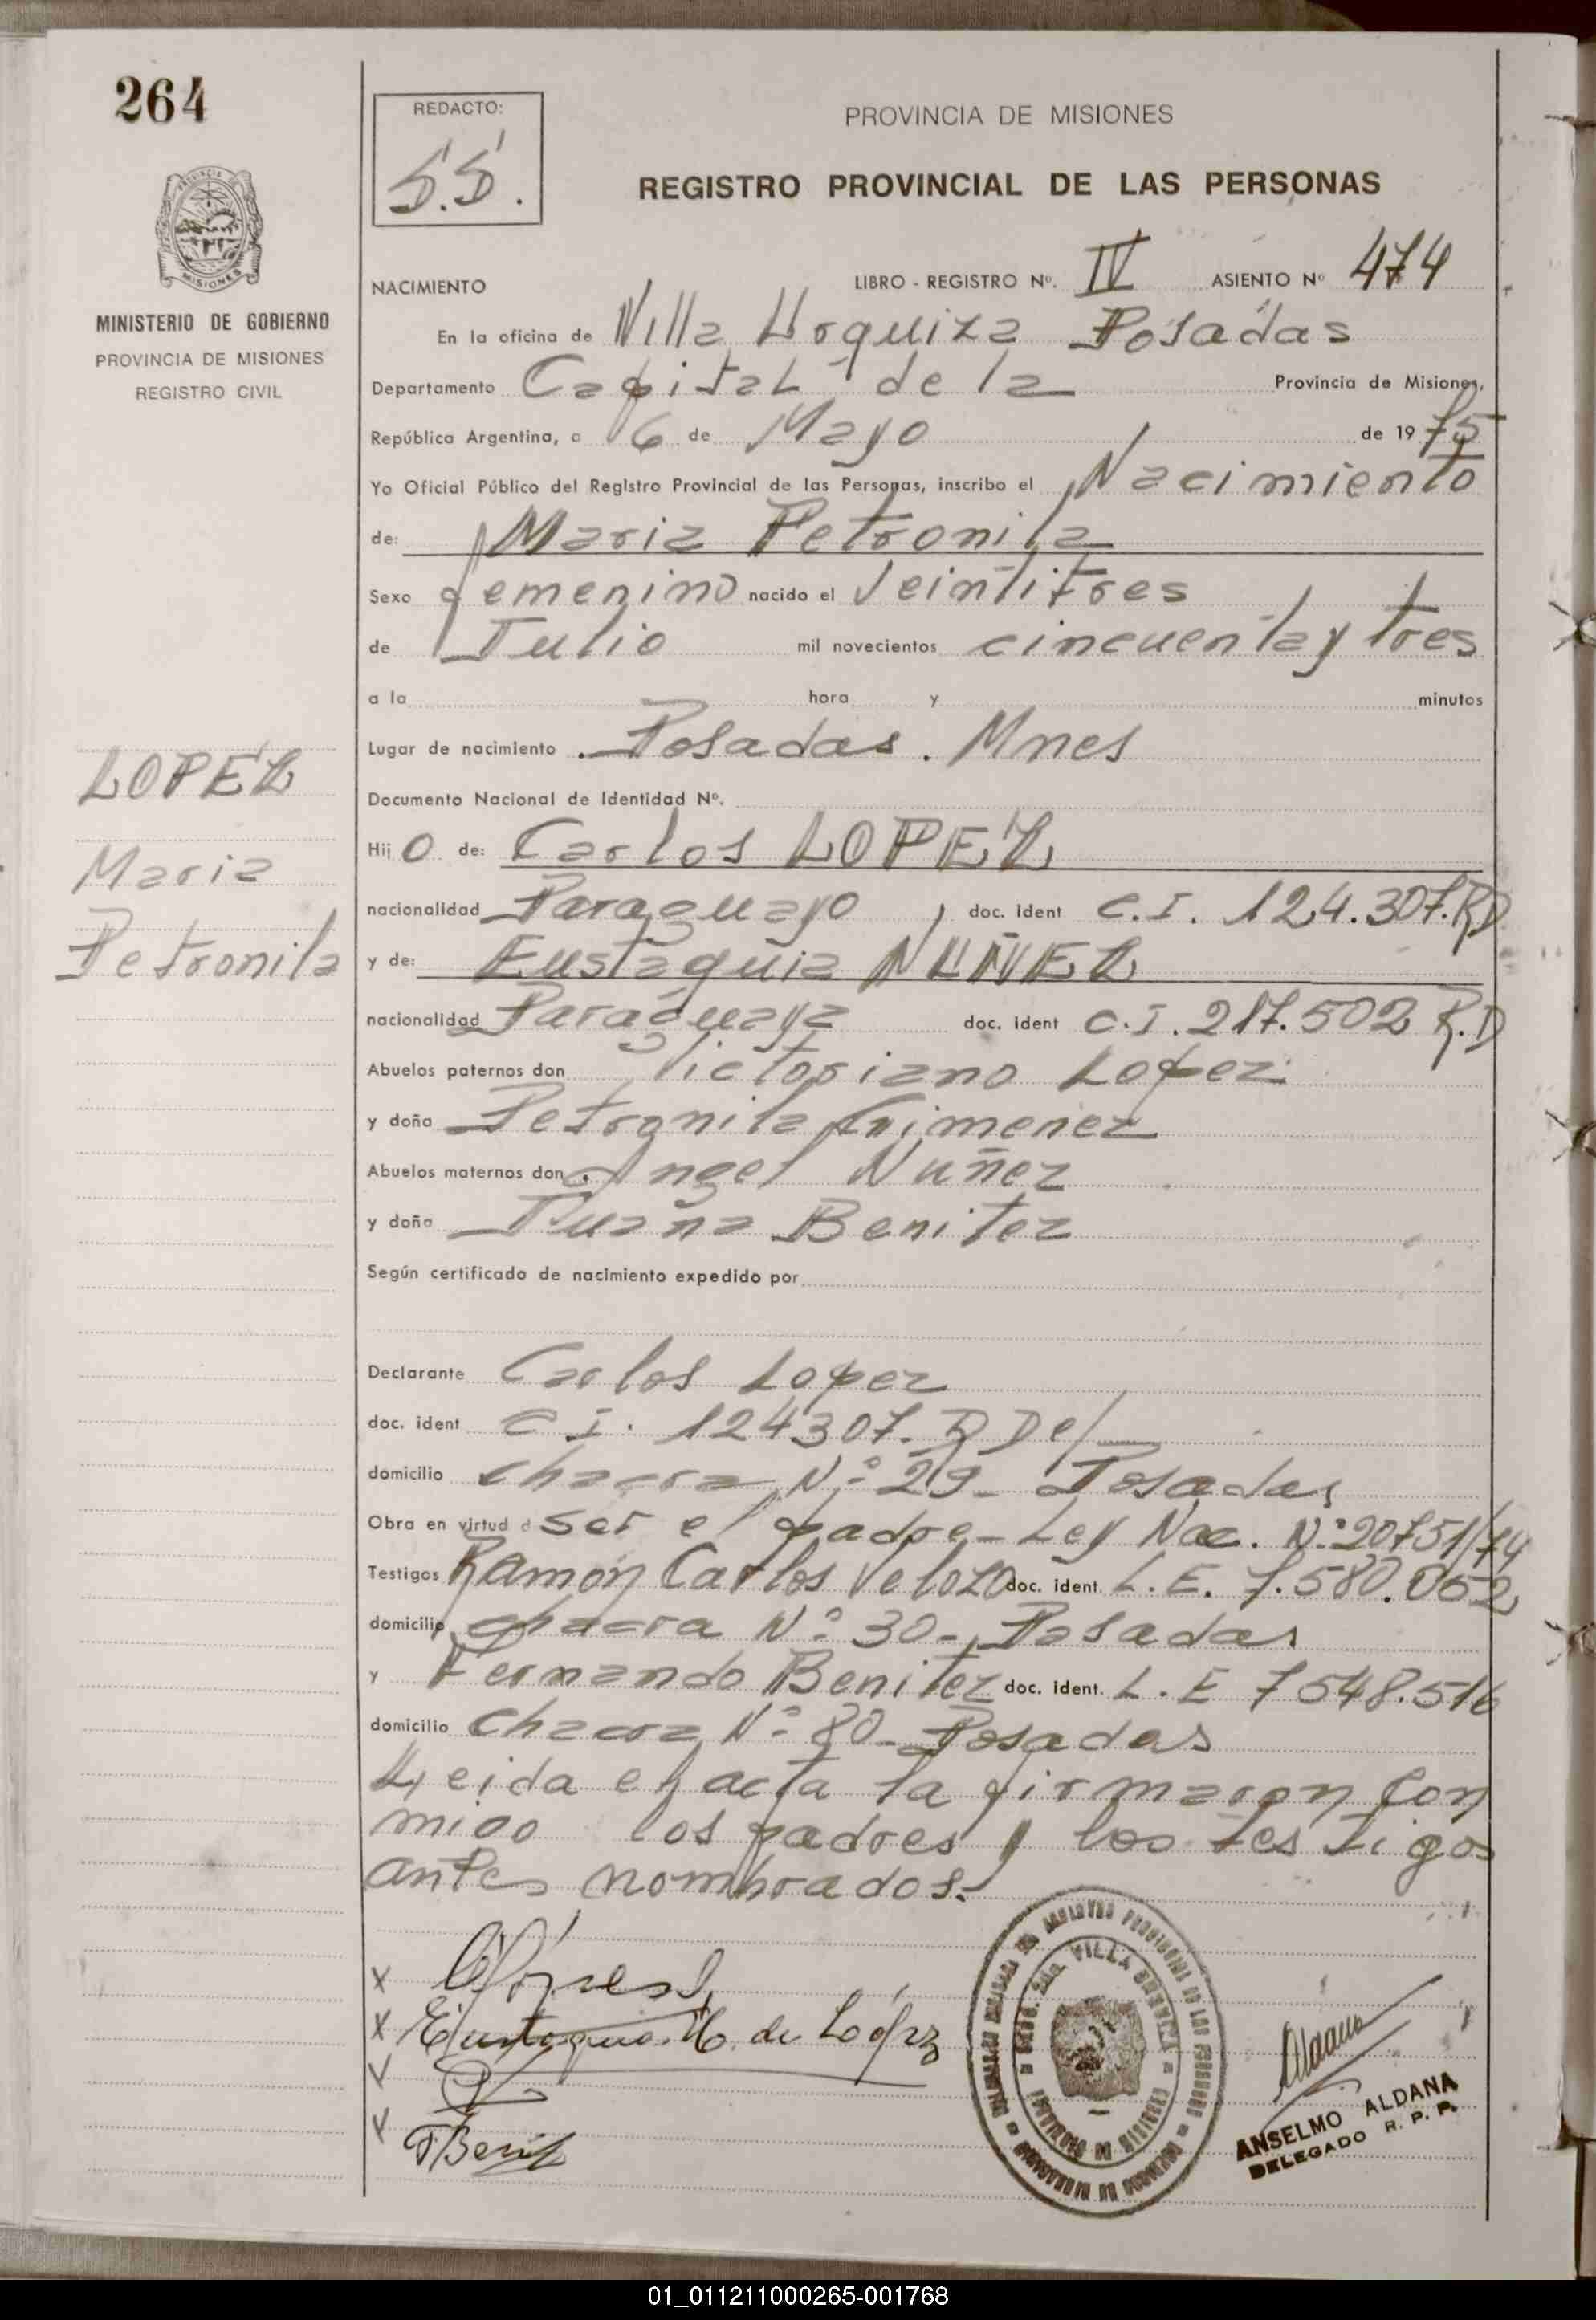 264
REDACTO:
S.S.
PROVINCIA DE MISIONES
REGISTRO PROVINCIAL DE LAS PERSONAS
MISIONES
MINISTERIO DE GOBIERNO
PROVINCIA DE MISIONES
REGISTRO CIVIL
NACIMIENTO LIBRO - REGISTRO Nº. IV ASIENTO Nº 474
En la oficina de Villa Urquiza Posadas
Departamento Capital de la Provincia de Misiones,
República Argentina, a 6 de Mayo de 1975
Yo Oficial Público del Registro Provincial de las Personas, inscribo el Nacimiento
de: Maria Petronila
Sexo femenino nacido el Veintitres
de Julio mil novecientos cincuenta y tres
a la hora y minutos
Lugar de nacimiento . Posadas . Mnes
LOPEZ
Maria
Petronila
Documento Nacional de Identidad Nº.
Hij O de: Carlos LOPEZ
nacionalidad Paraguayo , doc. ident C.I. 124.307.R.D
y de: Eustaquia NUÑEZ
nacionalidad Paraguaya doc. ident C.I. 217.502 R.D
Abuelos paternos don Victoriano Lopez
y doña Petronila Gimenez
Abuelos maternos don . Angel Nuñez
y doña Juana Benitez
Según certificado de nacimiento expedido por
Declarante Carlos Lopez
doc. ident C I. 124307. R D e/
domicilio chacra Nº 29 - Posadas
Obra en virtud d ser el padre - Ley Nac. Nº 20751/74
Testigos Ramón Carlos Velozo doc. ident L.E. 7.580.052
domicilio chacra Nº 30 - Posadas
y Fernando Benitez doc. ident. L.E 7548.516
domicilio chacra Nº 80 - Posadas
Leida el acta la firmaron con
migo los padres y los testigos
antes nombrados.-
X
X Eustaquia N. de López
F Benit
VILLA
ANSELMO ALDANA
DELEGADO R. P. P.
01_011211000265-001768